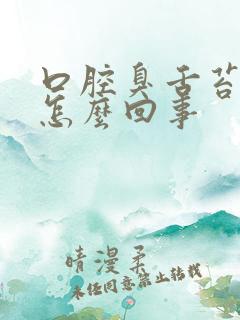 口腔臭舌苔
怎麼回事
晴漫柔
未经同意禁止转载